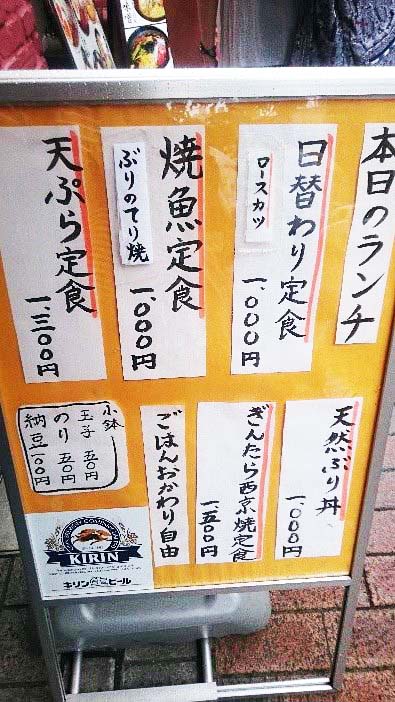 本日のランチ
日替わり定食
ロースカツ
一、〇〇〇円
焼魚定食
ぶりのてり焼
一、〇〇〇円
天ぷら定食
一、三〇〇円
天然ぶり丼
一、〇〇〇円
ぎんだら西京焼定食
一五〇〇円
ごはんおかわり自由
小鉢
玉子 五〇円
のり 五〇円
納豆 一〇〇円
KIRIN
キリンビール